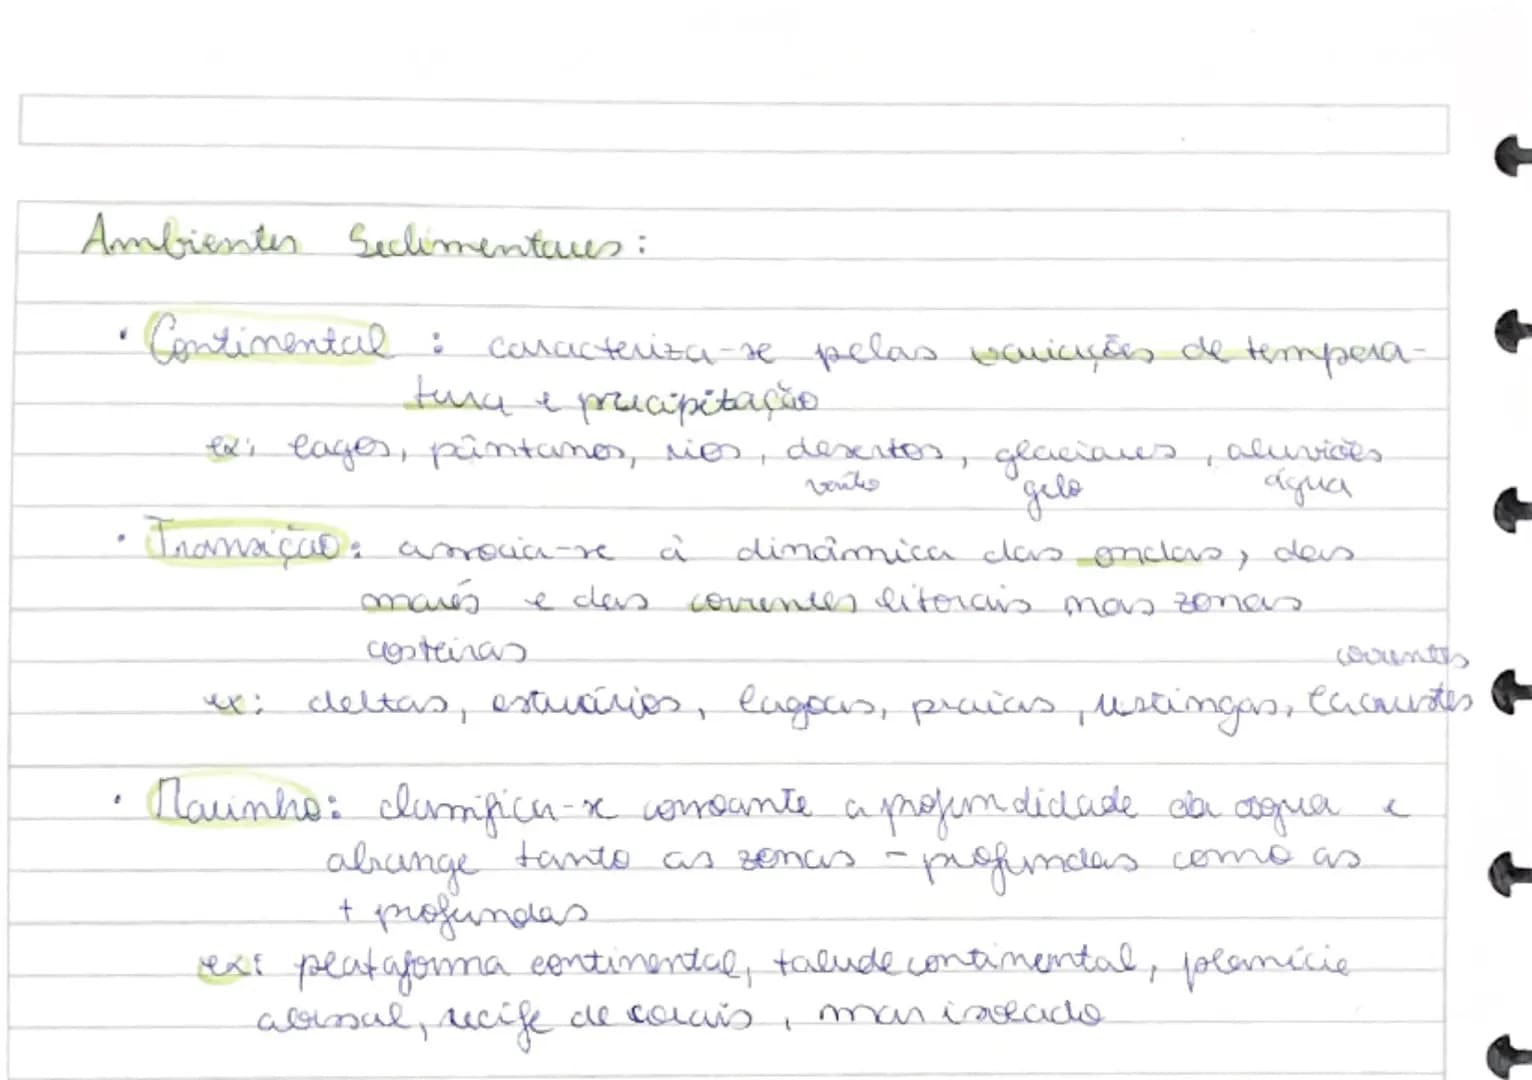 Ambientes Sedimentares:
• Continental : caracteriza-se pelas variações de tempera-
tura e precipitação
ex: lagos, pântanos, rios, desertos, glaciares, aluviões
vento gelo água
• Transição: associa-se à dinâmica das ondas, das
marés e das correntes litorais nas zonas
costeiras
correntes
ex: deltas, estuários, lagoas, praias, restingas,
• Marinho: classifica-se consoante a profundidade da água e
abrange tanto as zonas - profundas como as
+ profundas
ex: plataforma continental, talude continental, planície
abissal, recife de corais, mar isolado